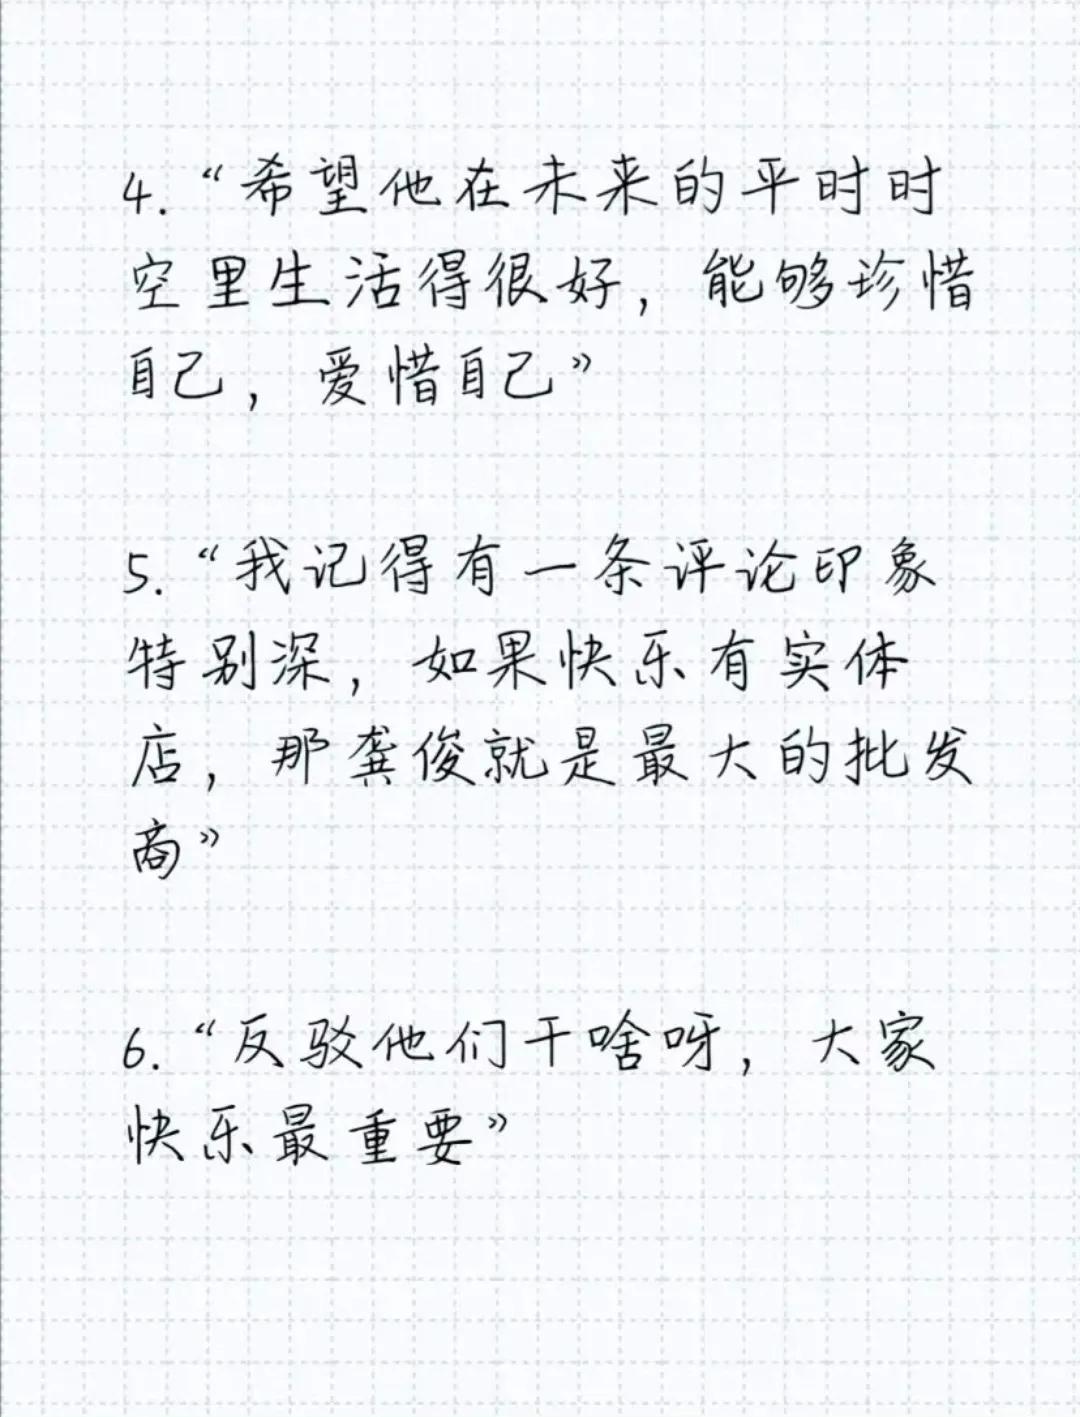 4.“希望他在未来的平时时
空里生活得很好，能够珍惜
自己，爱惜自己”
5.“我记得有一条评论印象
特别深，如果快乐有实体
店，那龚俊就是最大的批发
商”
6.“反驳他们干啥呀，大家
快乐最重要”